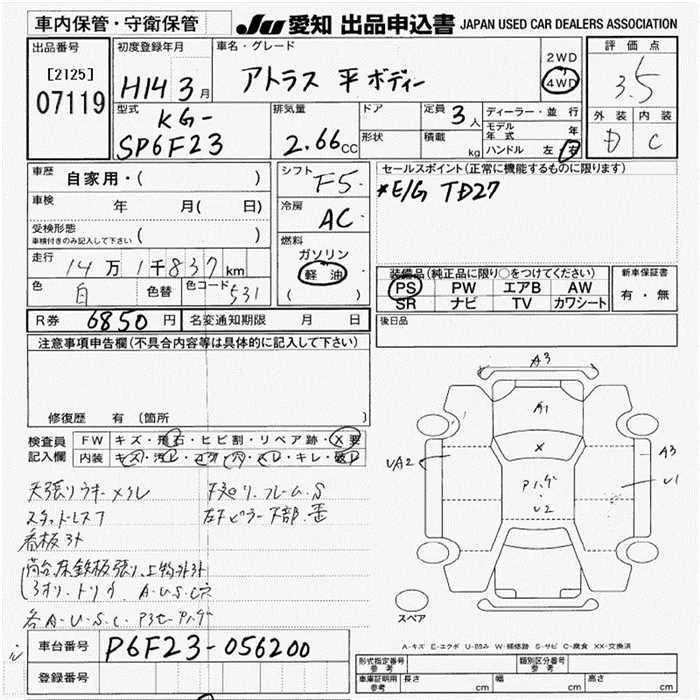 車内保管・守衛保管
JU 愛知 出品申込書 JAPAN USED CAR DEALERS ASSOCIATION
出品番号
[2125]
07119
初度登録年月
H14 3月
車名・グレード
アトラス 平ボディー
2WD
4WD
評価点
3.5
外装 内装
D C
型式
KG-
SP6F23
排気量
2.66cc
ドア
形状
定員 3人
積載 kg
ディーラー・並行
モデル年式 年
ハンドル 左 右
車歴 自家用・( )
車検 年 月( 日)
受検形態
車検付きのみ記入して下さい ( )
走行 14万1千837km
色 白 色替 色コード 531
シフト F5
冷房 AC
燃料
ガソリン
軽油
( )
セールスポイント(正常に機能するものに限ります)
*E/G TD27
装備品(純正品に限り〇をつけてください)
PS PW エアB AW
SR ナビ TV カワシート
新車保証書
有・無
後日品
R券 6850円 名変通知期限 月 日
注意事項申告欄(不具合内容等は具体的に記入して下さい)
修復歴 有(箇所 )
検査員記入欄
FW キズ・飛石・ヒビ割・リペア跡・X要
内装 キズ・汚レ・コゲ・穴・スレ・キレ・破レ
天張りウキ・メクレ
下廻り、フレーム.S
スタッドレス7
左F ピラー下部.歪
看板跡
荷台床鉄板張り、上物外跡
A・U・S・C穴
各A・U・S・C・
A3
A1
X
U2
UA2
A3
U1
スペア
A-キズ E-エクボ U-凹み W-補修跡 S-サビ C-腐食 XX-交換済
車台番号 P6F23-056200
登録番号
形式指定番号 参考
類別区分番号 参考
車庫証明用 参考 長さ cm 幅 cm 高さ cm